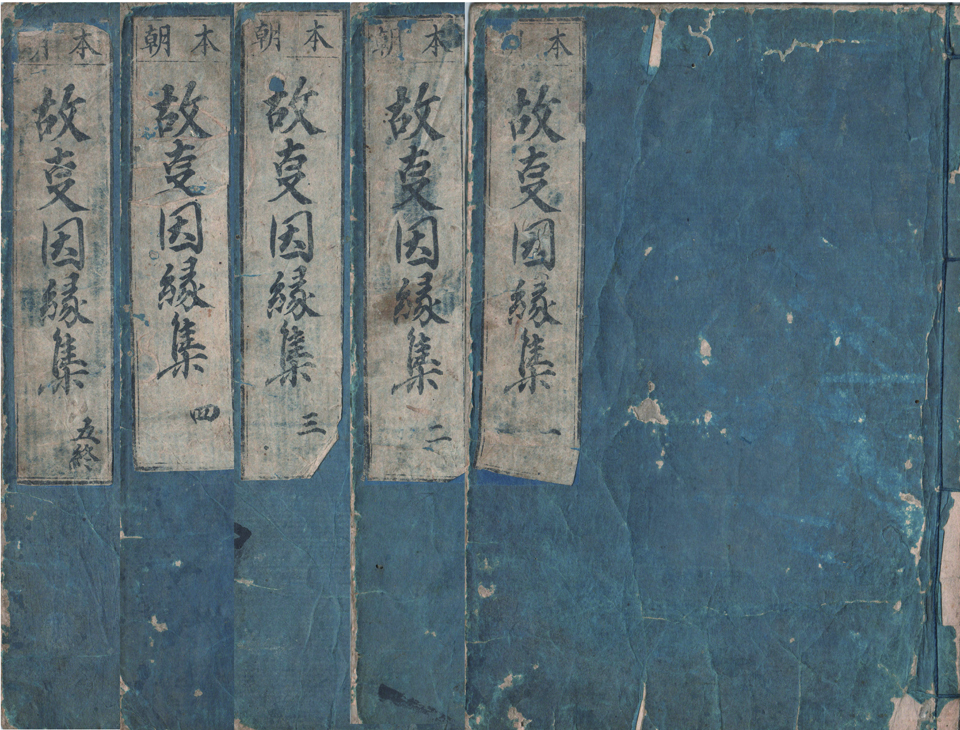 本
故叓因縁集
一
本朝
故叓因縁集
二
本朝
故叓因縁集
三
本朝
故叓因縁集
四
本
故叓因縁集
五終